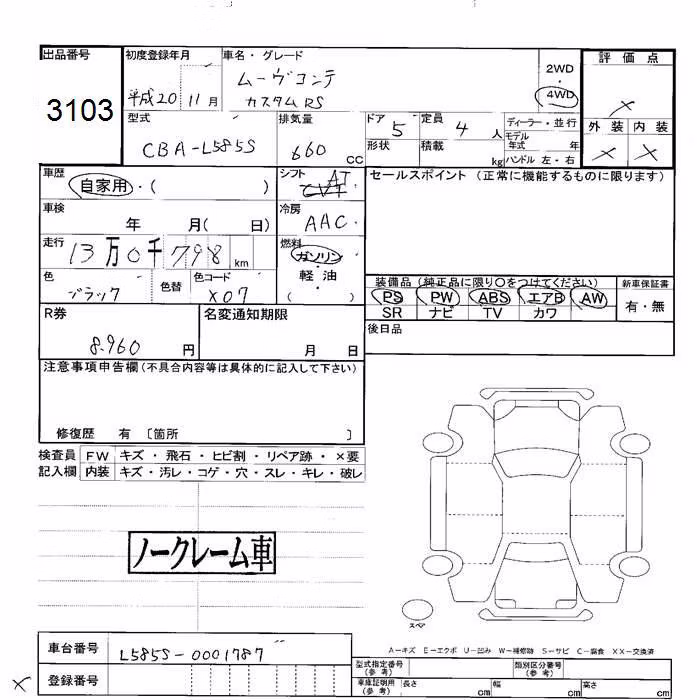 出品番号
3103
初度登録年月
平成20 11月
車名・グレード
ムーヴコンテ
カスタムRS
2WD
・
4WD
評価点
×
外装 内装
× ×
型式
CBA-L585S
排気量
660 CC
ドア 5
形状
定員 4 人
積載 kg
ディーラー・並行
モデル
年式 年
ハンドル 左・右
車歴
自家用・( )
シフト AT
CVT
セールスポイント (正常に機能するものに限ります)
車検
年 月( 日)
冷房
AAC
走行
13万0千798km
燃料
ガソリン
・
軽油
( )
色
ブラック
色替
色コード
X07
装備品(純正品に限り○をつけてください)
PS PW ABS エアB AW
SR ナビ TV カワ
新車保証書
有・無
R券
8,960 円
名変通知期限
月 日
後日品
注意事項申告欄(不具合内容等は具体的に記入して下さい)
修復歴 有 〔箇所 〕
検査員
記入欄
FW キズ・飛石・ヒビ割・リペア跡・×要
内装 キズ・汚レ・コゲ・穴・スレ・キレ・破レ
ノークレーム車
スペア
A－キズ E－エクボ U－凹み W－補修跡 S－サビ C－腐食 XX－交換済
車台番号
L585S-0001787
登録番号
×
型式指定番号
(参考)
類別区分番号
(参考)
車庫証明用
(参考)
長さ cm
幅 cm
高さ cm